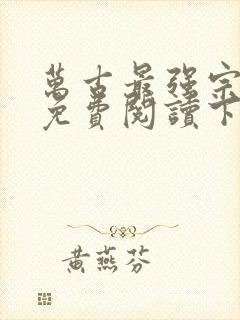 萬古最強宗
免費閱讀下
黃燕芬